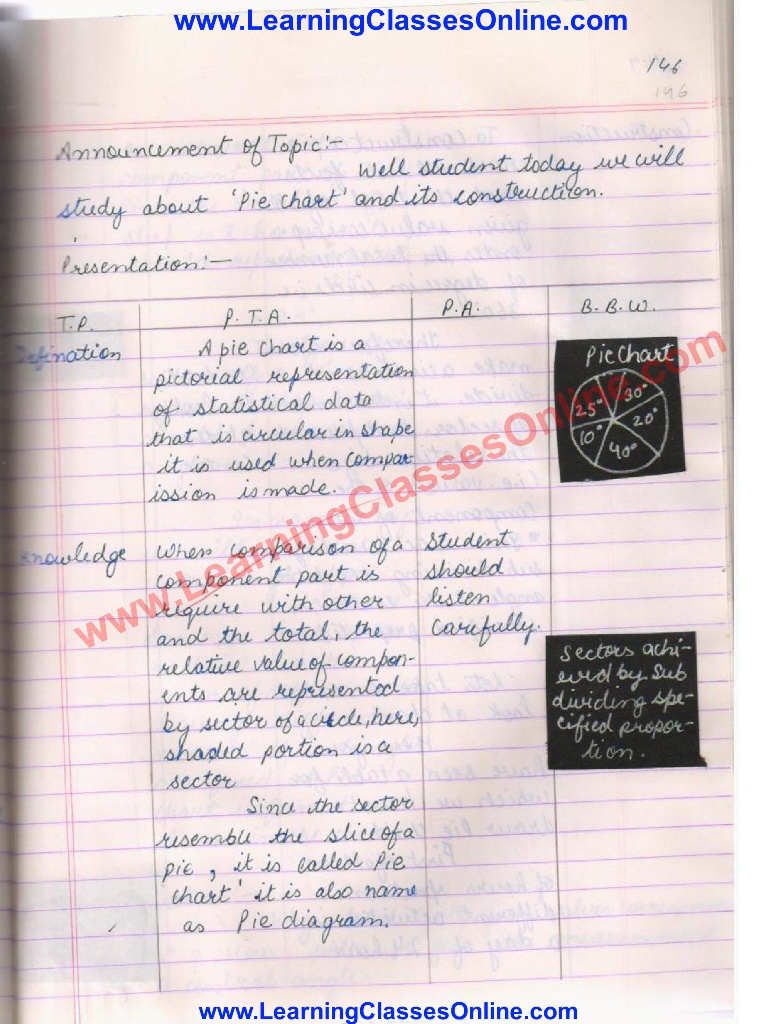 www.LearningClassesOnline.com
146
146
Announcement of Topic:-
Well student today we will
study about 'Pie chart' and its construction.
Presentation:-
T.P.
P.T.A.
P.A.
B.B.W.
Defination
A pie chart is a
pictorial representation
of statistical data
that is circular in shape
it is used when compar-
ission is made.
Pie Chart
25°
30°
20°
10°
40°
Knowledge
When comparison of a
component part is
require with other
and the total, the
relative value of compon-
ents are represented
by sector of a circle, here,
shaded portion is a
sector
Since the sector
resemble the slice of a
pie, it is called 'Pie
chart' it is also name
as Pie diagram.
Student
should
listen
carefully.
Sectors achi-
eved by sub
dividing spe-
cified propor-
tion.
www.LearningClassesOnline.com
www.LearningClassesOnline.com